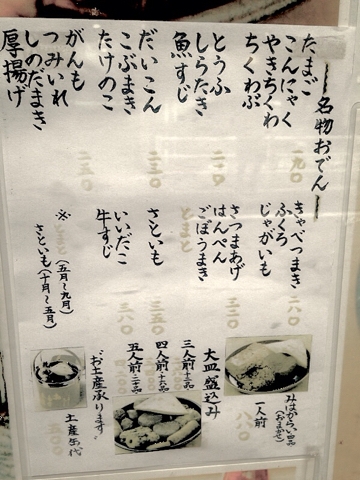 名物おでん
たまご
こんにゃく
やきちくわ
ちくわぶ
一九〇
とうふ
しらたき
魚すじ
二一〇
だいこん
こぶまき
たけのこ
二三〇
がんも
つみいれ
しのだまき
厚揚げ
二五〇
きゃべつまき
ふくろ
じゃがいも
二八〇
さつまあげ
はんぺん
ごぼうまき
とまと
三二〇
さといも
三五〇
いいだこ
牛すじ
※とまと(五月〜九月)
さといも(十月〜五月)
みはからい四品
(おまかせ)
一人前
大皿盛込み
三人前十二品
四人前十六品
五人前二十品
お土産承ります
土産缶代
五〇〇